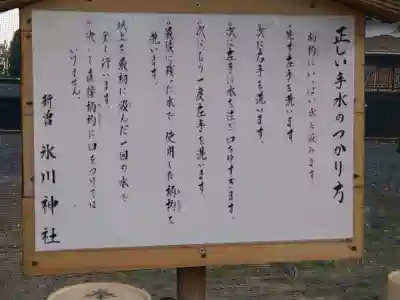 正しい手水のつかり方
柄杓にいっぱい水を汲みます
○先ず左手を洗います。
○次に右手を洗います。
○次に左手に水を注ぎ口をゆすぎます。
○次にもう一度左手を洗います。
○最後に残った水で、使用した柄杓を
洗います。
以上を最初に汲んだ一回の水で
全て行います。
○決して直接柄杓に口をつけては
いけません。
新曽 氷川神社